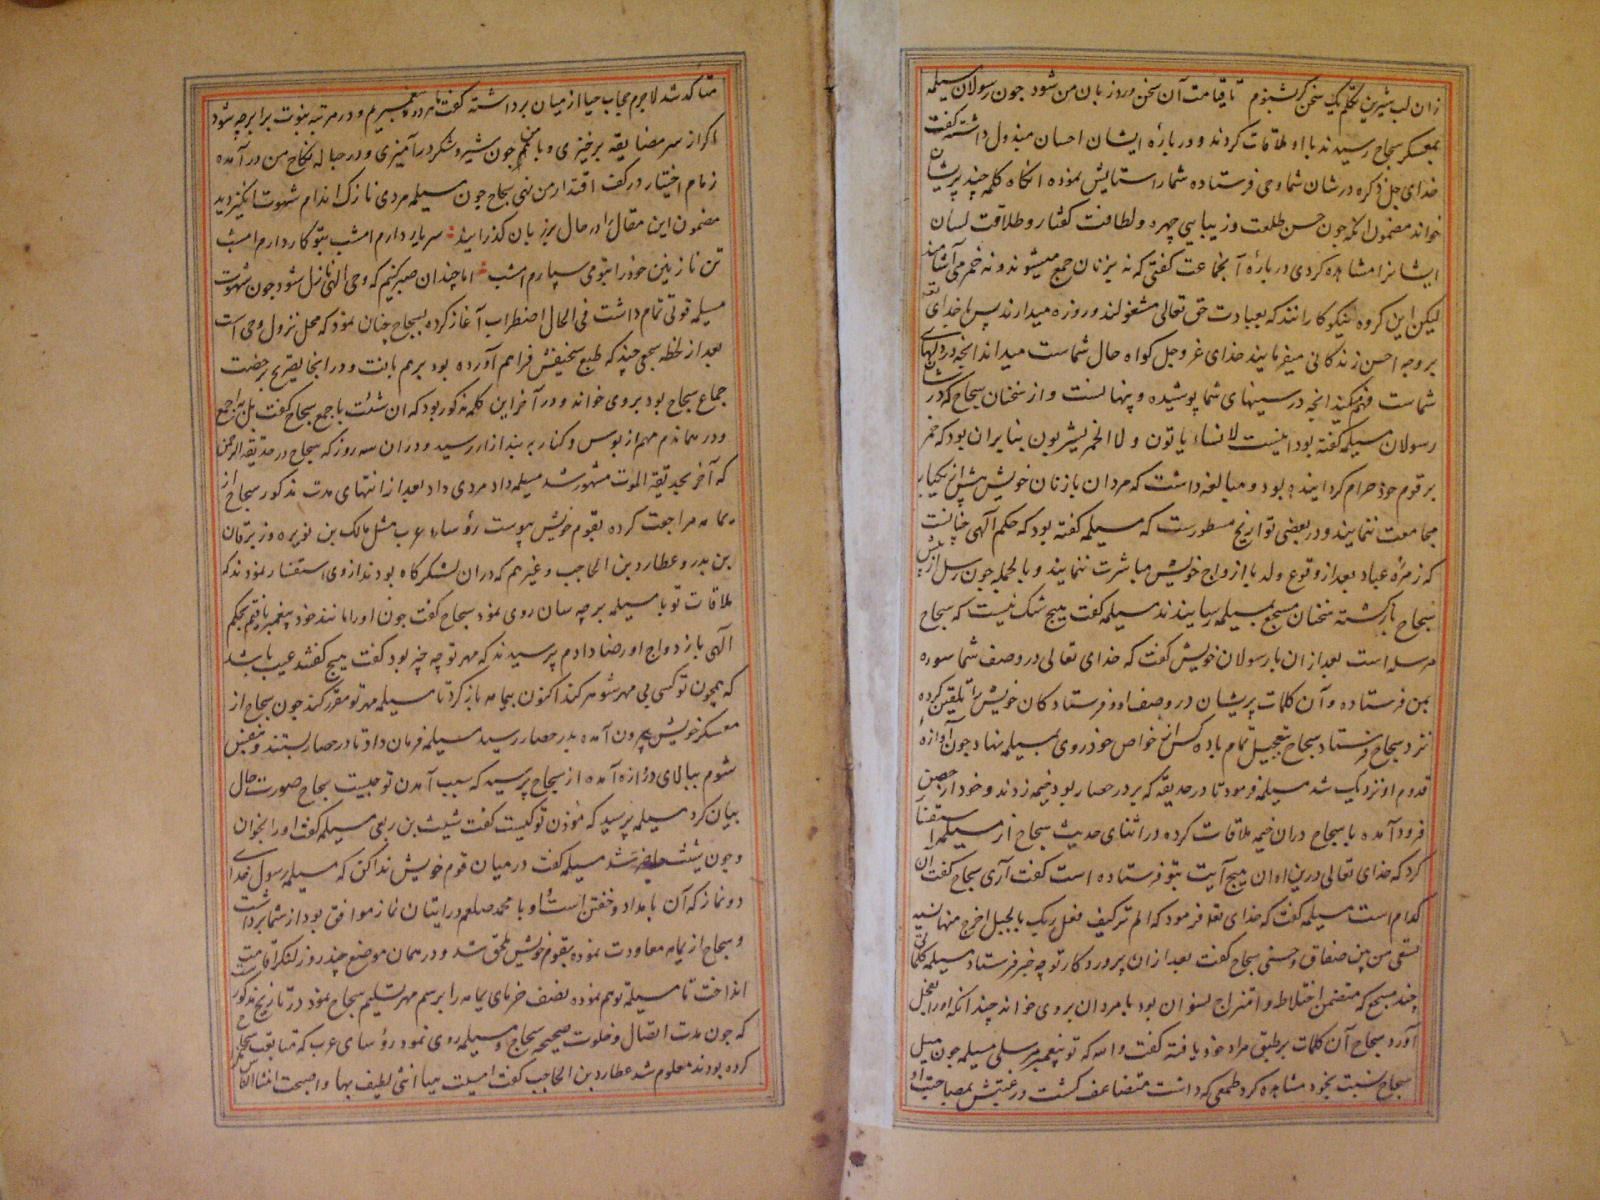 زان لب شیرین تکلم یک سخن گر بشنوم تا قیامت آن سخن ورد زبان من شود جون رسولان مسیلمه
بمعسکر سجاح رسیدند با او ملاقات کردند و دربارهٔ ایشان احسان مبذول داشته گفت
خدای جل ذکره در شان شما وحی فرستاده شما را ستایش نموده انکاه کلمهٔ چند پریشان
خواند مضمون انکه جون حسن طلعت و زیبایی چهره و لطافت کفتار و طلاقت لسان
ایشانرا مشاهده کردی دربارهٔ آنجماعت کفتی که نه بزنان جمع میشوند و نه خمر می آشامند
لیکن این کروه نیکوکارانند که بعبادت حق تعالی مشغولند و روزه میدارند پس خدای
بر وجه احسن زندکانی میفرمایند خدای عز و جل کواه حال شماست میداند انچه در دلهای
شماست انچه در سینهای شما پوشیده و پنهانست و از سخنان سجاح که در
رسولان مسیلمه کفته بود اینست لا نساء یاتون و لا الخمر یشربون بنا بران بود که خمر
بر قوم خود حرام کردانیده بود و مبالغه داشت که مردان با زنان خویش بیش از یکبار
مجامعت ننمایند و در بعضی تواریخ مسطورست که مسیلمه کفته بود که حکم آلهی چنانست
که زمرهٔ عباد بعد از وقوع ولد با ازواج خویش مباشرت ننمایند و بالجمله جون رسل از پیش
سجاح بازکشته سخنان مسجع بمسیلمه رسانیدند مسیلمه کفت هیچ شک نیست که سجاح
مرسله است بعد از ان با رسولان خویش کفت که خدای تعالی در وصف شما سوره
بمن فرستاده و آن کلمات پریشان در وصف او و فرستادکان خویش را تلقین کرده
نزد سجاح فرستاد سجاح بتعجیل تمام با ده کس از خواص خود روی بمسیلمه نهاد جون آوازهٔ
قدوم او نزدیک شد مسیلمه فرمود تا در حدیقه که بر در حصار بود خیمه زدند و خود از حصن
فرود آمده با سجاح دران خیمه ملاقات کرده در اثنای حدیث سجاح از مسیلمه استفسار
کرد که خدای تعالی درین اوان هیچ آیت بتو فرستاده است کفت آری سجاح کفت آن
کدام است مسیلمه کفت که خدای تعالی فرمود که الم تر کیف فعل ربک بالحبلی اخرج منها نسمة
تسقی من بین صفاق و حشی سجاح کفت بعد از ان پروردکار تو چه خبر فرستاد مسیلمه کلماتی
چند مسجع که متضمن اختلاط و امتزاج نسوان بود با مردان بروی خواند چندانکه او را بفعل
آورد سجاح آن کلمات بر طبق مراد خود یافته کفت والله که تو پیغمبر مرسلی مسیلمه جون میل
سجاح نسبت بخود مشاهده کرد طمعی که داشت متضاعف کشت و رغبتش بمصاحبت او
متاکد شد لاجرم حجاب حیا از میان برداشته کفت ما هر دو پیغمبریم و در مرتبه نبوت برابر چه شود
اکر از سر مضایقه برخیزی و با من جون شیر و شکر در آمیزی و در حباله نکاح من در آمده
زمام اختیار در کف اقتدار من نهی سجاح جون مسیلمه مردی نازک اندام شهوت انکیز دید
مضمون این مقال را در حال بر زبان کذرانید سر یاری دارم امشب بتو کار دارم امشب
تن نازنین خود را بتو می سپارم امشب اما چندان صبر کنیم که وحی الهی نازل شود جون شهوت
مسیلمه قوتی تمام داشت فی الحال اضطراب آغاز کرده بسجاح چنان نمود که محل نزول وحی است
بعد از لحظه سجعی چند که طبع سخیفش فراهم آورده بود برهم بافت و در انجا بصریح رخصت
جماع سجاح بود بروی خواند و در آخر این کلمه مذکور بود که ان شئت باجمع سجاح کفت بل به اجمع
و در هماندم مهم از بوس و کنار به بند ازار رسید و دران سه روز که سجاح در حدیقة الرحمن
که آخر بحدیقة الموت مشهور شد مسیلمه داد مردی داد بعد از انتهای مدت مذکور سجاح از
یمامه مراجعت کرده بقوم خویش پیوست رؤساء عرب مثل مالک بن نویره و زبرقان
بن بدر و عطارد بن الحاجب و غیرهم که دران لشکرکاه بودند از وی استفسار نمودند که
ملاقات تو با مسیلمه بر چه سان روی نمود سجاح کفت جون او را مانند خود پیغمبر یافتم بحکم
آلهی بازدواج او رضا دادم پرسیدند که مهر تو چه چیز بود کفت هیچ کفتند عیب باشد
که همچون تو کسی بی مهر شوهر کند اکنون بیمامه باز کرد تا مسیلمه مهر تو مقرر کند جون سجاح از
معسکر خویش بیرون آمده بدر حصار رسید مسیلمه فرمان داد تا در حصار ببستند و بنفس
شوم ببالای دروازه آمده از سجاح پرسید که سبب آمدن تو چیست سجاح صورت حال
بیان کرد مسیلمه پرسید که مؤذن تو کیست کفت شیث بن ربعی مسیلمه کفت او را بخوان
و جون شیث حاضر شد مسیلمه کفت در میان قوم خویش ندا کن که مسیلمه رسول خدای
دو نماز که آن بامداد و خفتن است و او با محمد صلعم در اتیان نماز موافق بود از شما برداشت
و سجاح از یمامه معاودت نموده بقوم خویش ملحق شد و در همان موضع چند روز لنکر اقامت
انداخت تا مسیلمه توهم نموده نصف خرمای یمامه را برسم مهر تسلیم سجاح نمود در تاریخ مذکور
که جون مدت اتصال و خلوت صحیحه سجاح و مسیلمه روی نمود رؤسای عرب که متابعت سجاح
کرده بودند معلوم شد عطارد بن الحاجب کفت امست نبیتنا انثی نطیف بها و اصبحت انبیاء الناس